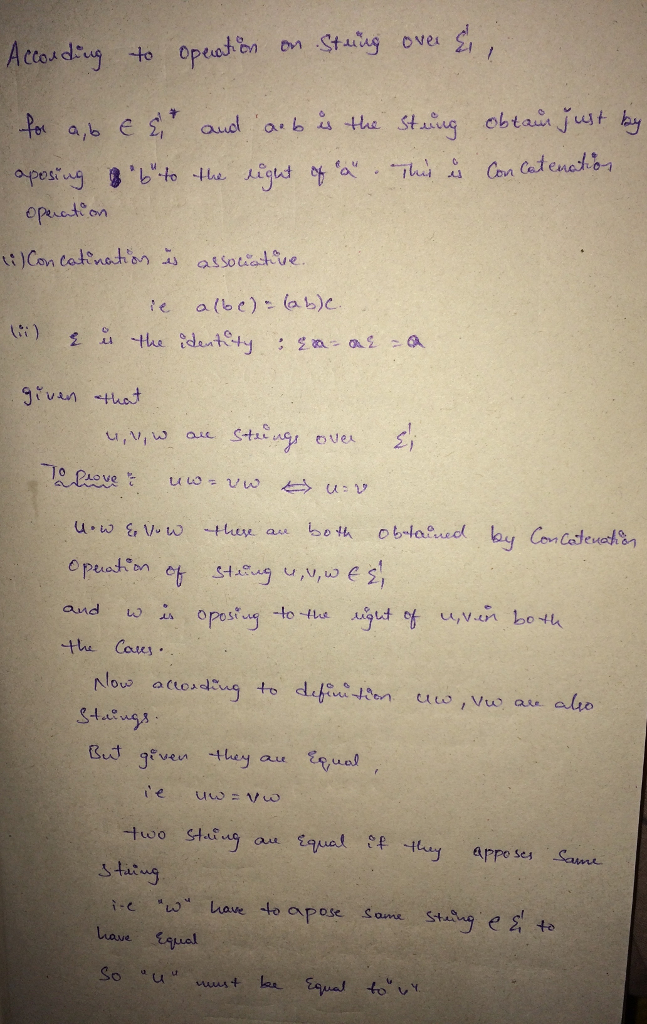 According to operation on string over Σ,
for a,b ∈ Σ* and a∘b is the string obtain just by
aposing "b" to the right of "a". This is Concatenation
operation
(i) Concatination is associative.
ie a(bc) = (ab)c
(ii) ε is the identity : εa = aε = a
given that
u,v,w are strings over Σ
To Prove : uw = vw ⇔ u=v
u∘w & v∘w there are both obtained by Concatenation
operation of string u,v,w ∈ Σ
and w is oposing to the right of u,v in both
the Cases.
Now according to definition uw, vw are also
strings.
But given they are Equal,
i'e uw = vw
two string are Equal if they apposes same
string
i-e "w" have to apose same string ∈ Σ to
have Equal
So "u" must be Equal to "v"